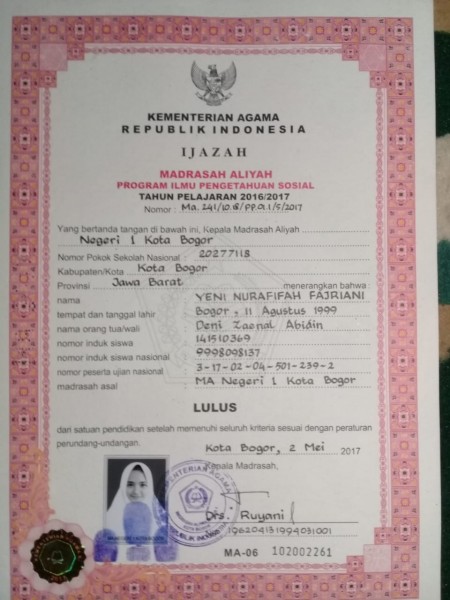 KEMENTERIAN AGAMA
REPUBLIK INDONESIA
IJAZAH
MADRASAH ALIYAH
PROGRAM ILMU PENGETAHUAN SOSIAL
TAHUN PELAJARAN 2016/2017
Nomor : Ma. 241/10.18/PP.01.1/5/2017
Yang bertanda tangan di bawah ini, Kepala Madrasah Aliyah
Negeri 1 Kota Bogor
Nomor Pokok Sekolah Nasional : 20277118
Kabupaten/Kota Kota Bogor
Provinsi Jawa Barat menerangkan bahwa :
nama YENI NURAFIFAH FAJRIANI
tempat dan tanggal lahir Bogor, 11 Agustus 1999
nama orang tua/wali Deni Zaenal Abidin
nomor induk siswa 141510369
nomor induk siswa nasional 9998098137
nomor peserta ujian nasional 3-17-02-04-501-239-2
madrasah asal MA Negeri 1 Kota Bogor
LULUS
dari satuan pendidikan setelah memenuhi seluruh kriteria sesuai dengan peraturan
perundang-undangan.
Kota Bogor, 2 Mei 2017
Kepala Madrasah,
KEMENTERIAN AGAMA
REPUBLIK INDONESIA
Drs. Ruyani
196204131994031001
MA-06 102002261